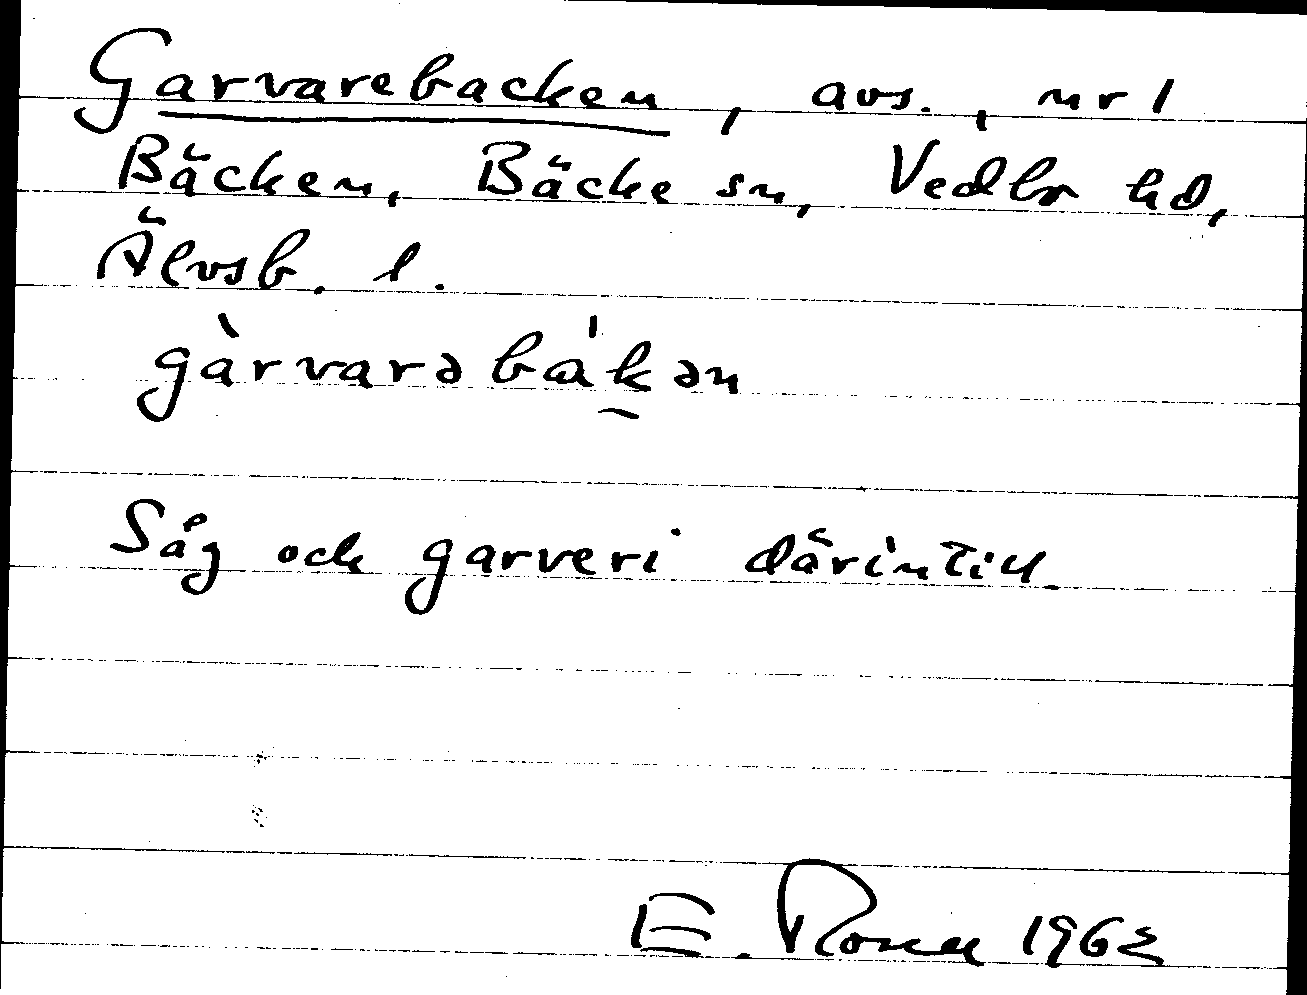 Garvarebacken, avs., nr 1
Bäcken, Bäcke sn, Vedbo hd,
Älvsb. l.
gàrvarə bák̯ən
Såg och garveri därintill.
E. 1962